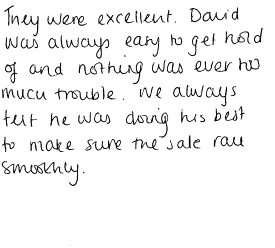 They were excellent. David
was always easy to get hold
of and nothing was ever too
much trouble. We always
felt he was doing his best
to make sure the sale ran
smoothly.